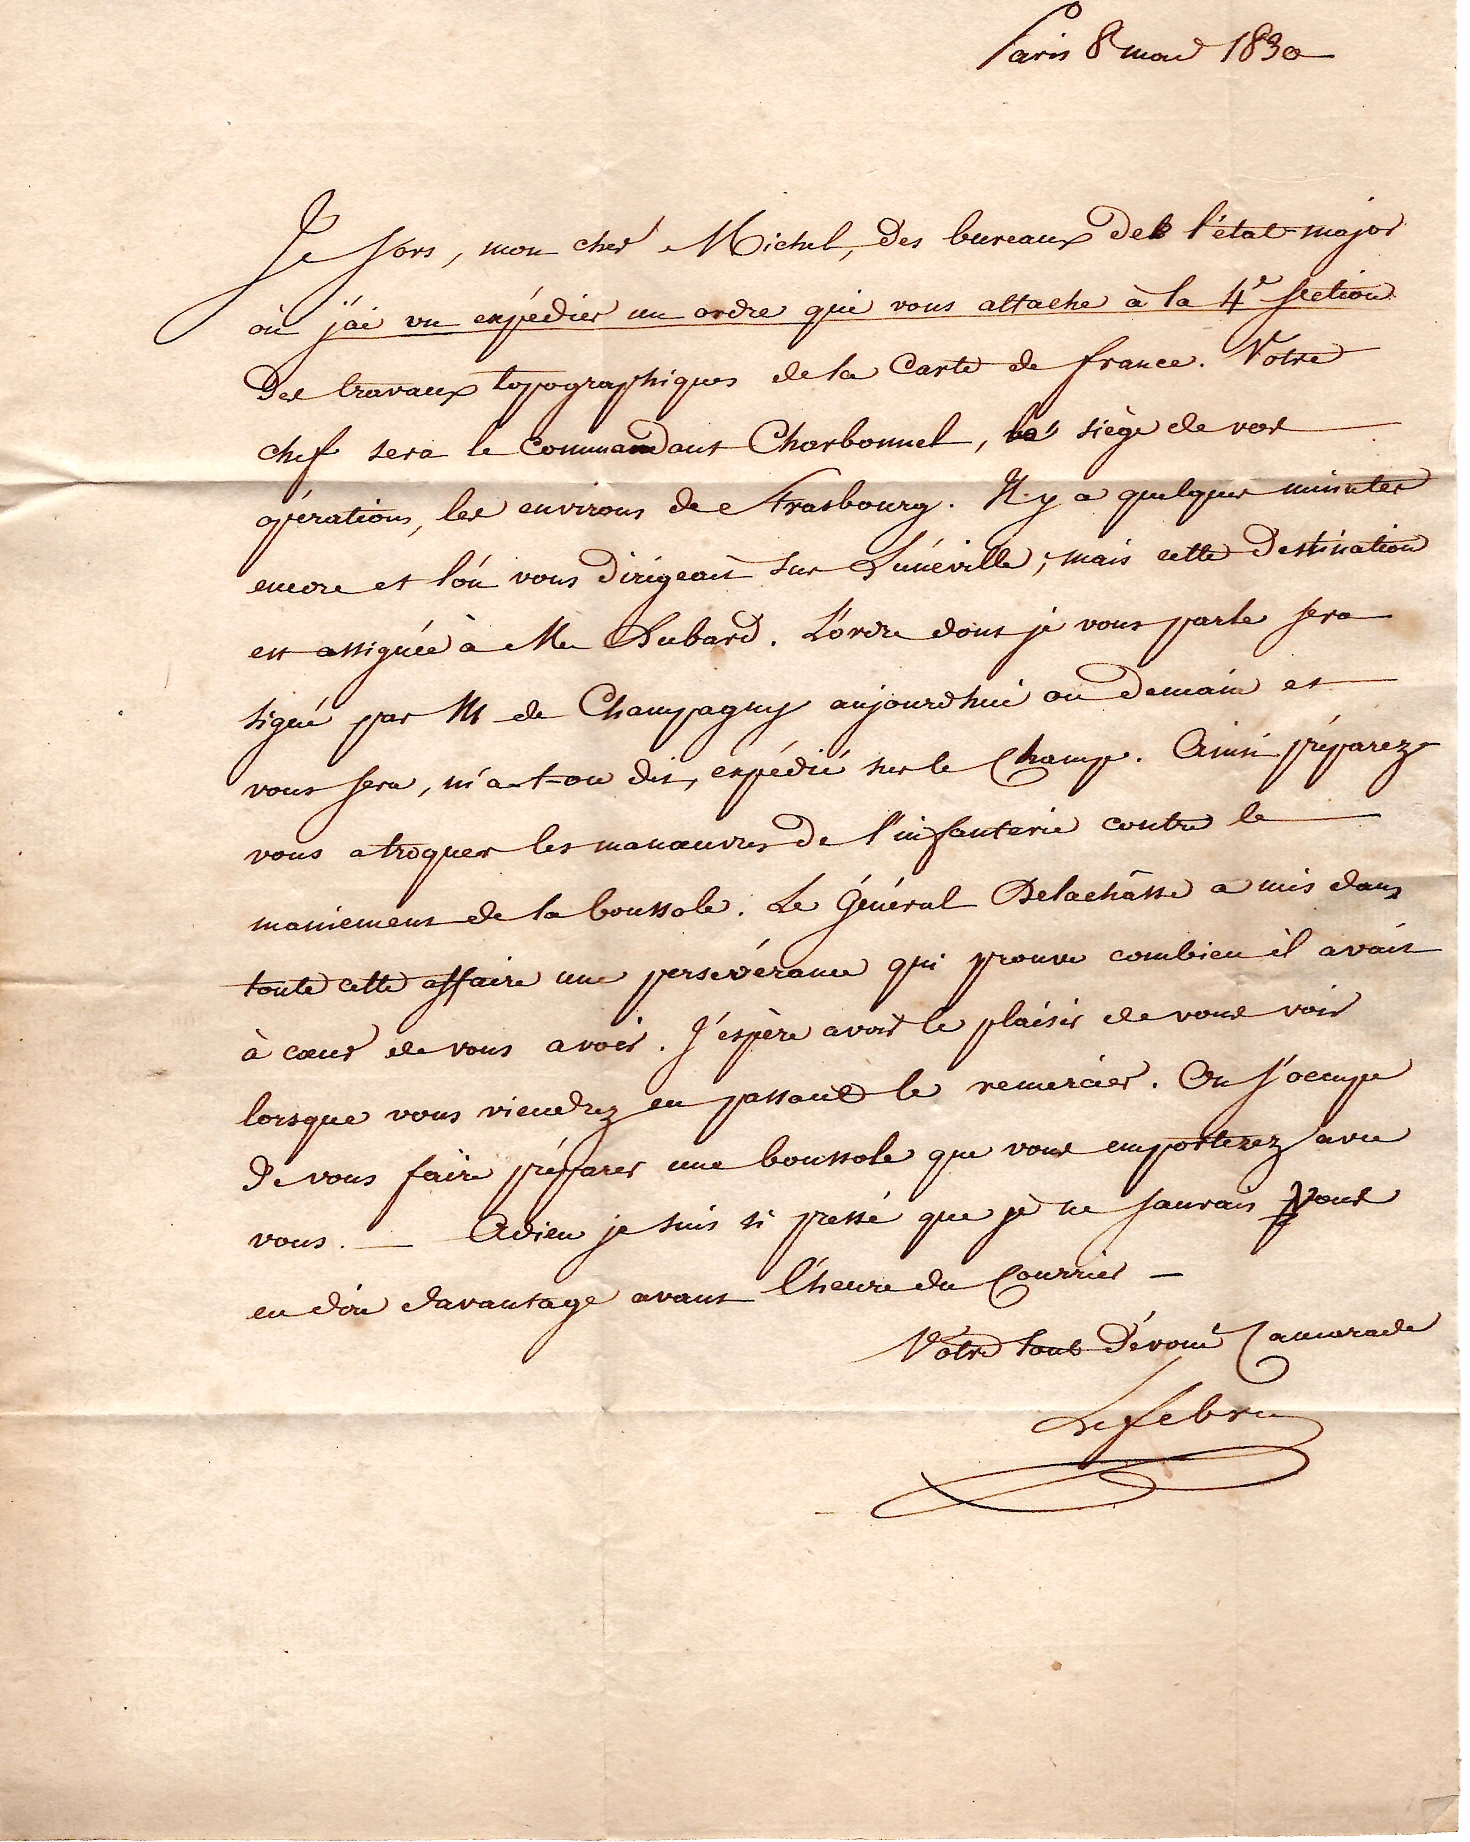 Paris 8 mars 1830
Je sors, mon cher Michel, des bureaux de l'état-major
où j'ai vu expédier un ordre qui vous attache à la 4e section
des travaux topographiques de la Carte de france. Votre
chef sera le Commandant Charbonnel, le siège de vos
opérations, les environs de Strasbourg. Il y a quelques minutes
encore et l'on vous dirigeait sur Lunéville; mais cette destination
est assignée à Mr Dubard. L'ordre dont je vous parle sera
signé par M de Champagny aujourd'hui ou demain et
vous sera, m'a-t-on dit, expédié sur le Champ. Ainsi préparez
vous a troquer les manœuvres de l'infanterie contre le
maniement de la boussole. Le Général Delachâsse a mis dans
toute cette affaire une persévérance qui prouve combien il avait
à cœur de vous avoir. J'espère avoir le plaisir de vous voir
lorsque vous viendrez en passant le remercier. On s'occupe
de vous faire préparer une boussole que vous emporterez avec
vous. — Adieu je suis si pressé que je ne saurais vous
en dire davantage avant l'heure du Courrier —
Votre tout dévoué Camarade
Lefebvre